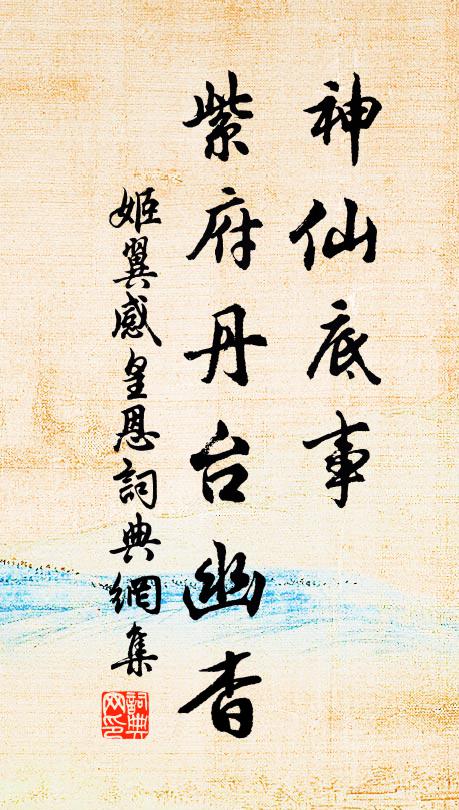 神仙底事
紫府丹台幽杳
姬翼感皇恩詞典網集
詞典网印